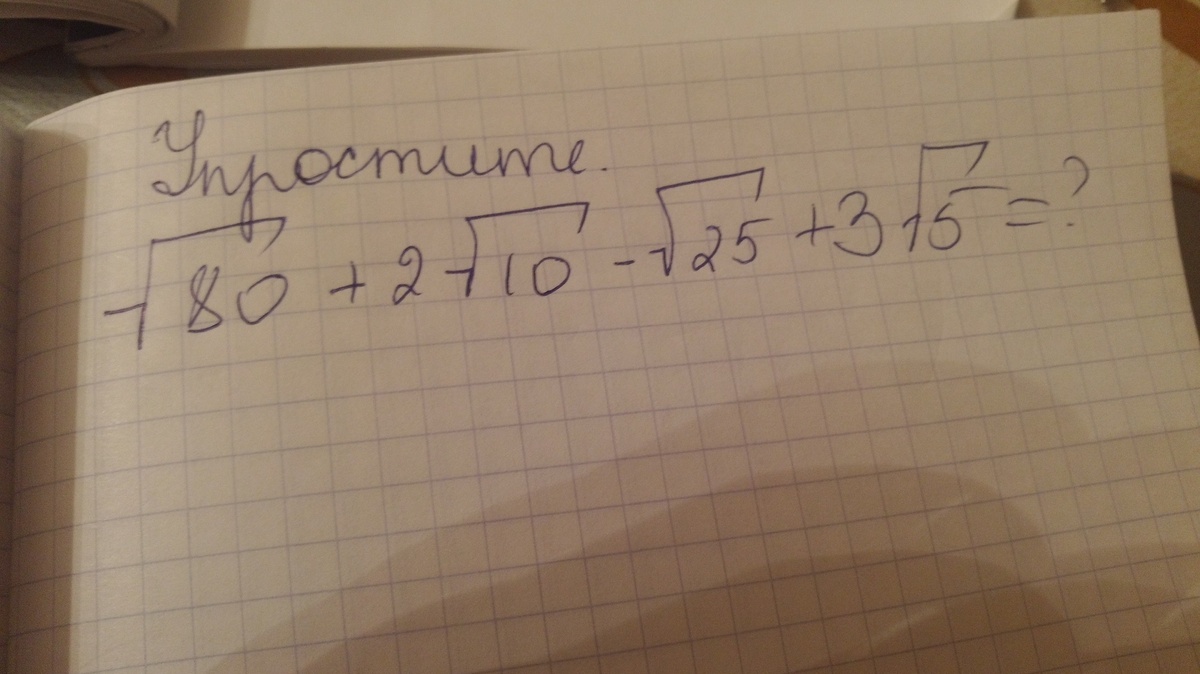 Упростите.
√80 + 2√10 - √25 + 3√5 = ?